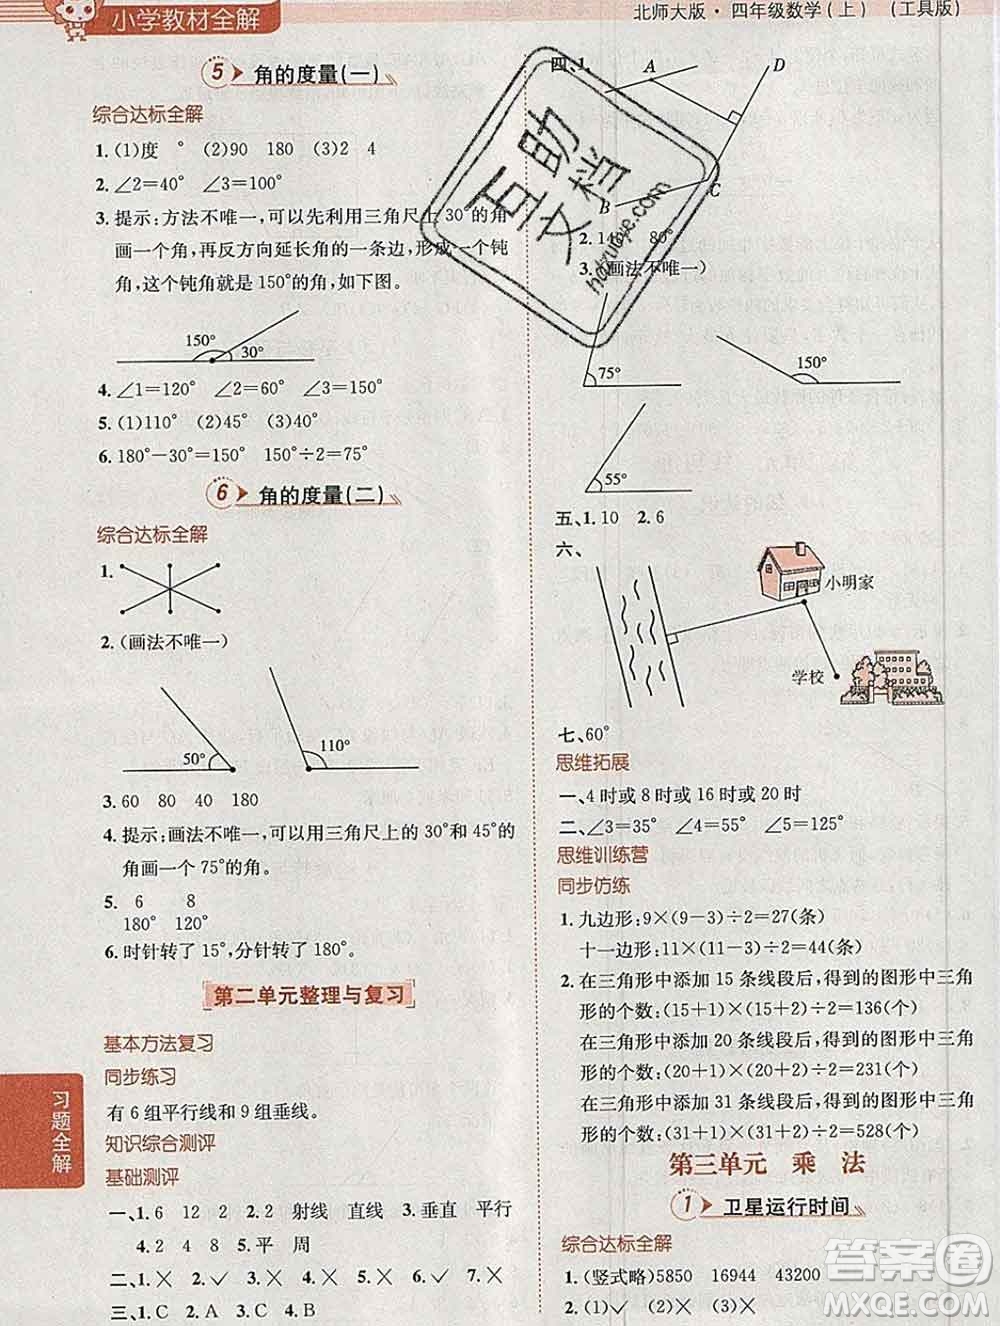 小学教材全解
北师大版·四年级数学(上) (工具版)
5 角的度量(一)
综合达标全解
1. (1)度 ° (2)90 180 (3)2 4
2. ∠2=40° ∠3=100°
3. 提示:方法不唯一,可以先利用三角尺上30°的角
画一个角,再反方向延长角的一条边,形成一个钝
角,这个钝角就是150°的角,如下图。
150° 30°
4. ∠1=120° ∠2=60° ∠3=150°
5. (1)110° (2)45° (3)40°
6. 180°-30°=150° 150°÷2=75°
6 角的度量(二)
综合达标全解
1.
2. (画法不唯一)
50° 110°
3. 60 80 40 180
4. 提示:画法不唯一,可以用三角尺上的30°和45°的
角画一个75°的角。
5. 6 8
180° 120°
6. 时针转了15°,分针转了180°。
第二单元整理与复习
基本方法复习
同步练习
有6组平行线和9组垂线。
知识综合测评
基础测评
一、1. 6 12 2 2. 2 射线 直线 3. 垂直 平行
4. 2 4 8 5. 平 周
二、1. ✓ 2. ✓ 3. ✕ 4. ✕ 5. ✓ 6. ✕
三、1. C 2. A 3. C 4. B
习题全解
四、1.
A D
B C
2. 80°
3. (画法不唯一)
75° 150°
55°
五、1. 10 2. 6
六、
小明家
学校
七、60°
思维拓展
一、4时或8时或16时或20时
二、∠3=35° ∠4=55° ∠5=125°
思维训练营
同步仿练
1. 九边形:9×(9-3)÷2=27(条)
十一边形:11×(11-3)÷2=44(条)
2. 在三角形中添加15条线段后,得到的图形中三角
形的个数:(15+1)×(15+2)÷2=136(个)
在三角形中添加20条线段后,得到的图形中三角
形的个数:(20+1)×(20+2)÷2=231(个)
在三角形中添加31条线段后,得到的图形中三角
形的个数:(31+1)×(31+2)÷2=528(个)
第三单元 乘法
1 卫星运行时间
综合达标全解
1. (竖式略)5850 16944 43200
2. (1)✓ (2)✕ (3)✕
互助文档
hdzuoye.com
答案圈
MXQE.COM